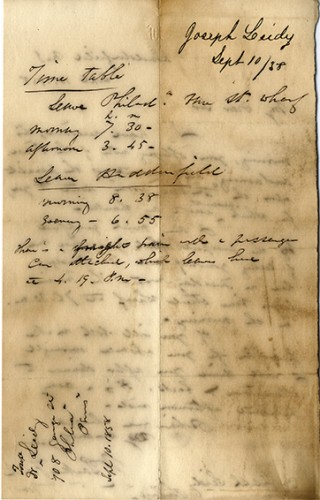 Joseph Leidy
Sept 10/58
Time table
Leave Philad.ª Vine St. wharf
h. m
morning 7. 30 -
afternoon 3. 45 -
Leave Haddonfield
morning 8. 38
Evening - 6. 55
There is a freight train with a passenger
Car attached, which leaves here
at 4. 19. P.m -
Dr Leidy
Philad.ª
Sept 10. 1858